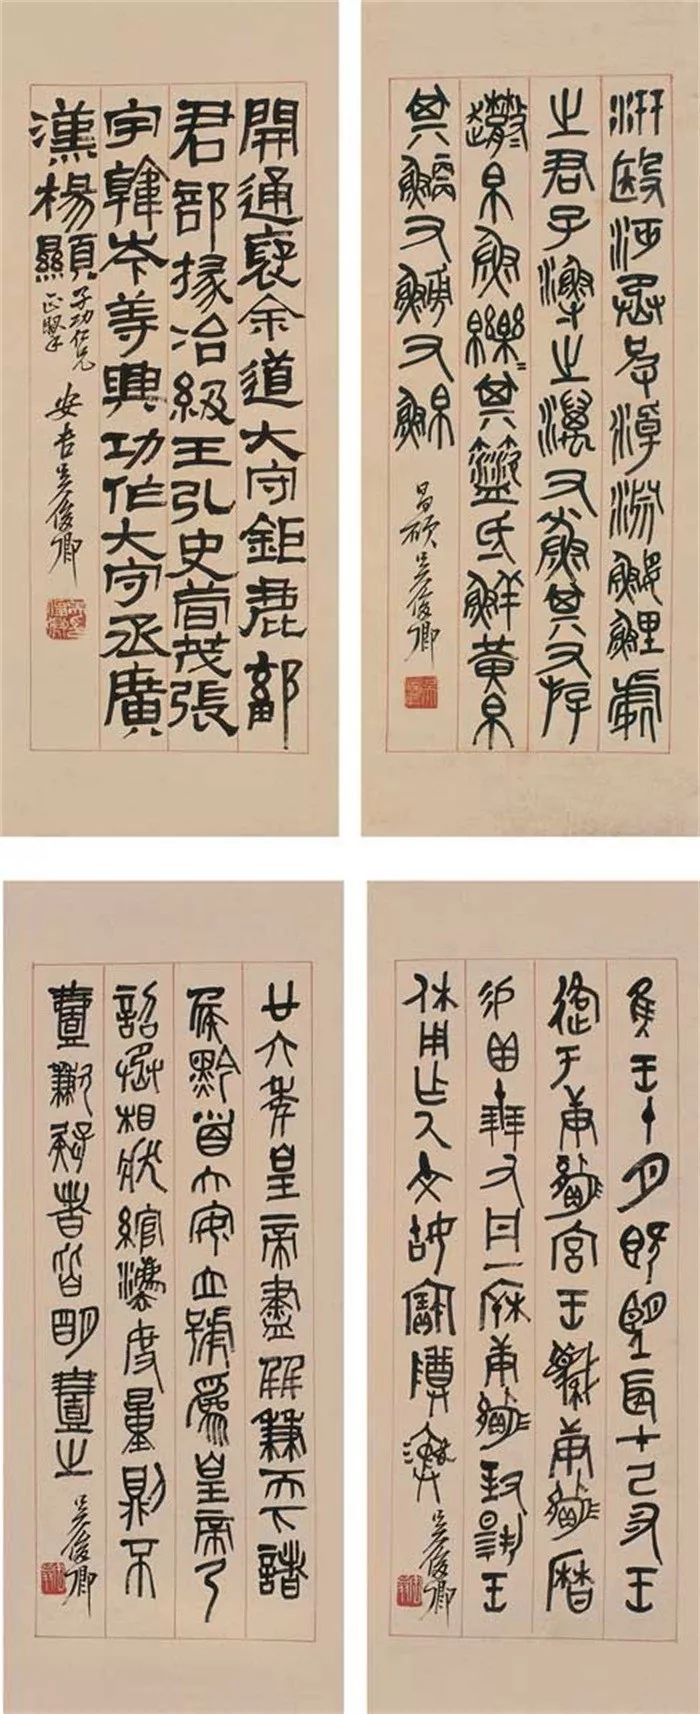 汧殹沔丞皮淖淵鰋鯉處
之君子漁之澫又小魚其又斿
趩帛魚皪=其盜氐鮮黃帛
其鯿又鰟又鮊
昌碩吳俊卿
開通褒余道大守鉅鹿鄐
君部掾冶級王弘史荀茂張
宇韓岑等興功作大守丞廣
漢楊顯
子功仁兄
安吉吳俊卿
隹王十月既望辰才己丑王
于庚嬴宮王蔑庚嬴曆
又丹一庚嬴對揚王
休用乍氒文姑寶尊彝
吳俊卿
廿六年皇帝盡并兼天下諸
侯黔首大安立號為皇帝乃
詔丞相狀綰灋度量則不
壹歉疑者皆明壹之
吳俊卿